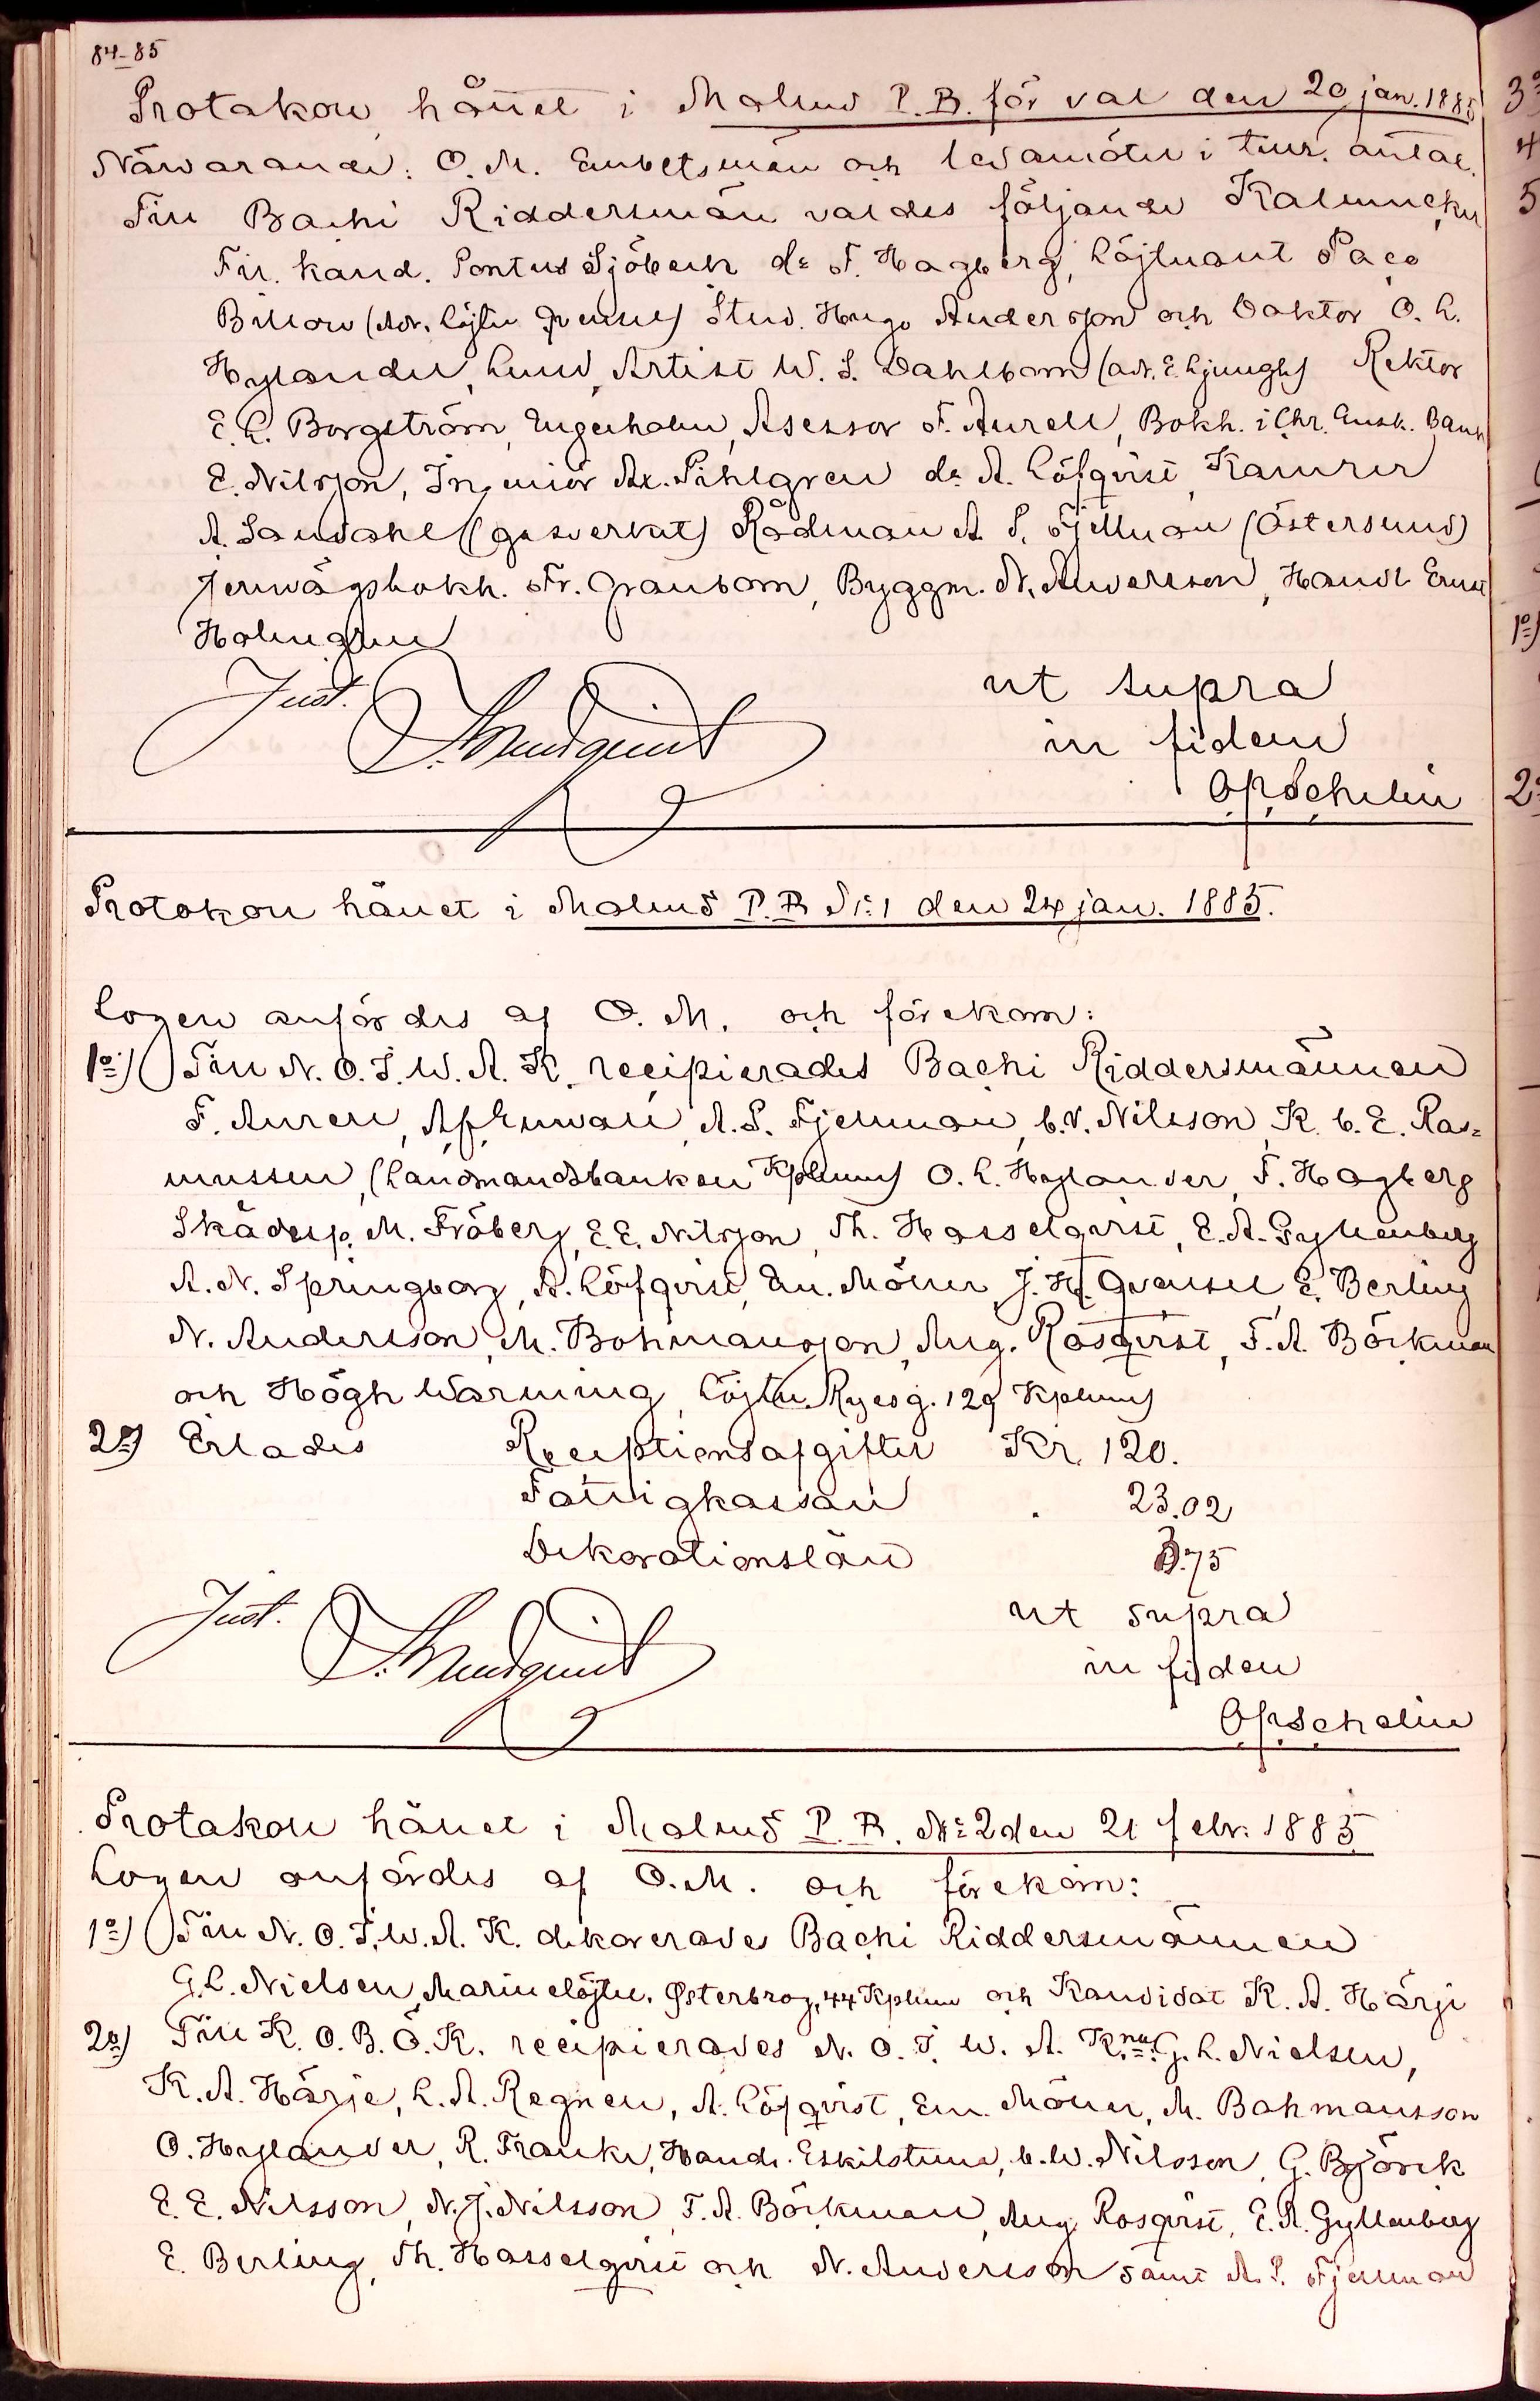 84-85
Protokoll hållet i Malmö P. B. för val den 20 jan. 1885
Närvarande: O. M. Embetsmän och ledamöter i tillr. antal.
Till Bachi Riddersmän valdes följande Kalmucker
Fil. kand. Pontus Sjöbeck do F. Hagberg, Löjtnant Paco
Billow (Adr. Löjtn Qvensel) Stud. Hugo Andersson och Doktor O. L.
Hylander, Lund, Artist W. S. Dahlbom (adr. E. Ljungh) Rektor
E. L. Borgström, Engelholm, Asessor F. Aurell, Bokh. i Chr. Ensk. Bank
E. Nilsson, Ingeniör Ax. Pihlgren do A. Löfqvist, Kamrer
A. Sandahl (gasverket) Rådman A. P. Fjellman (Östersund)
Jernvägsbokh. Fr. Granbom, Byggm. N. Andersson, Handl Ernst
Holmgren
Just. ut supra
in fidem
Protokoll hållet i Malmö P. B. No 1 den 24 jan. 1885.
Logen anfördes af O. M. och förekom:
1o) Till N. O. I. W. A. K. recipierades Bachi Riddersmännen
F. Aurell, A. P. Fjellman, C. V. Nilsson, K. C. E. Ras-
mussen, (Landmandsbanken Kphmn) O. L. Hylander, F. Hagberg
Skådesp. M. Fröberg, E. E. Nilsson, Th. Hasselqvist, E. A. Gyllenberg
A. N. Springborg, A. Löfqvist, Em. Möller, J. H. Qvensel, E. Berling
N. Andersson, M. Bohmansson, Aug. Rosqvist, F. A. Böckman
och Högh Warming, Löjtn. Ryesg. 129 Kphmn)
2o) Erlades Receptionsafgifter Kr. 120.
Fattigkassan . 23.02
Dekorationslån 3.75
Just. ut supra
in fidem
Protokoll hållet i Malmö P. B. No 2 den 21 febr. 1885
Logen anfördes af O. M. och förekom:
1o) Till N. O. I. W. A. K. dekorerades Bachi Riddersmännen
G. L. Nielsen, Marinelöjtn. Østerbrog. 44 Kphmn och Kandidat K. A. Härje
2o) Till K. O. B. Ö. K. recipierades N. O. I. W. A. K.na G. L. Nielsen,
K. A. Härje, L. A. Regnell, A. Löfqvist, Em. Möller, M. Bohmansson
O. Hylander, R. Franke, Handl. Eskilstuna, C. W. Nilsson, G. Björck
E. E. Nilsson, N. J. Nilsson, F. A. Böckman, Aug Rosqvist, E. A. Gyllenberg
E. Berling, Th. Hasselqvist och N. Andersson samt A. P. Fjellman